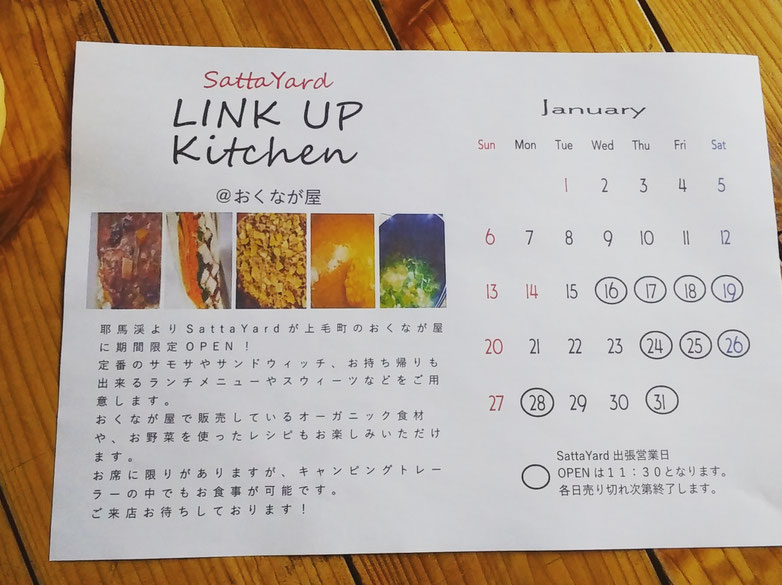 SattaYard
LINK UP
Kitchen
@おくなが屋
耶馬渓よりSattaYardが上毛町のおくなが屋
に期間限定OPEN！
定番のサモサやサンドウィッチ、お持ち帰りも
出来るランチメニューやスウィーツなどをご用
意します。
おくなが屋で販売しているオーガニック食材
や、お野菜を使ったレシピもお楽しみいただけ
ます。
お席に限りがありますが、キャンピングトレー
ラーの中でもお食事が可能です。
ご来店お待ちしております！
January
Sun Mon Tue Wed Thu Fri Sat
1 2 3 4 5
6 7 8 9 10 11 12
13 14 15 16 17 18 19
20 21 22 23 24 25 26
27 28 29 30 31
SattaYard 出張営業日
OPENは１１：３０となります。
各日売り切れ次第終了します。